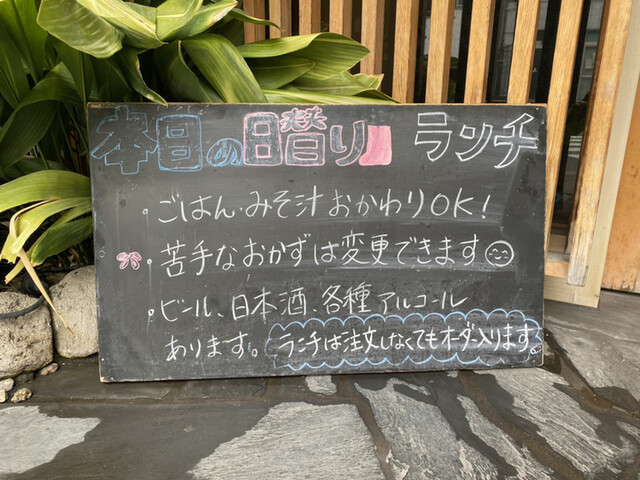 本日の日替り ランチ
・ごはん・みそ汁おかわりOK!
・苦手なおかずは変更できます
・ビール、日本酒、各種アルコール
あります。 ランチは注文しなくてもオーダー入ります。